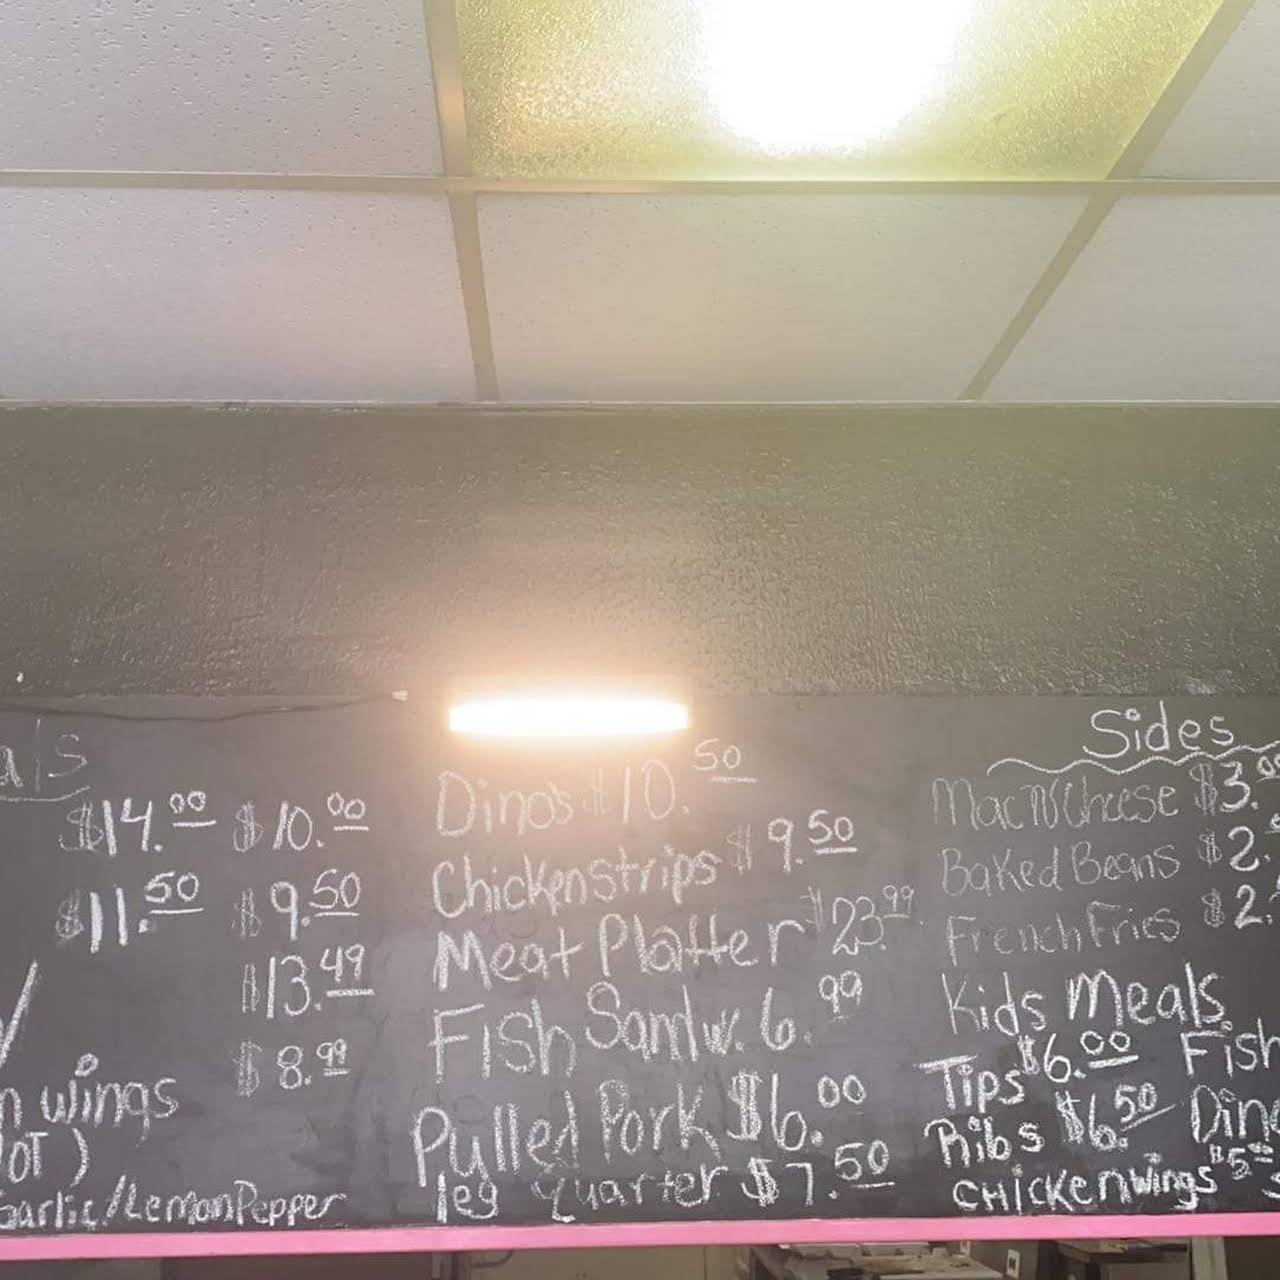 als
$14.00 $10.00
$11.50 $9.50
$13.49
$8.99
wings
)
Garlic/LemonPepper
Dino's $10.50
Chickenstrips $9.50
Meat Platter $23.99
Fish Sandw. 6.99
Pulled Pork $6.00
leg quarter $7.50
Sides
Mac'N'Cheese $3.00
Baked Beans $2.
French Fries $2.
Kids Meals
Tips $6.00 Fish
Ribs $6.50 Dino
Chickenwings $5